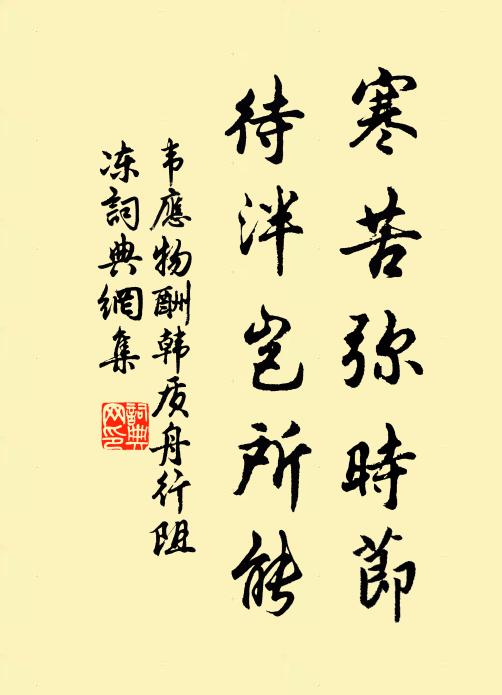 寒苦弥時節
待泮岂所能
韦應物酬韩质舟行阻
冻詞典網集
詞典网印